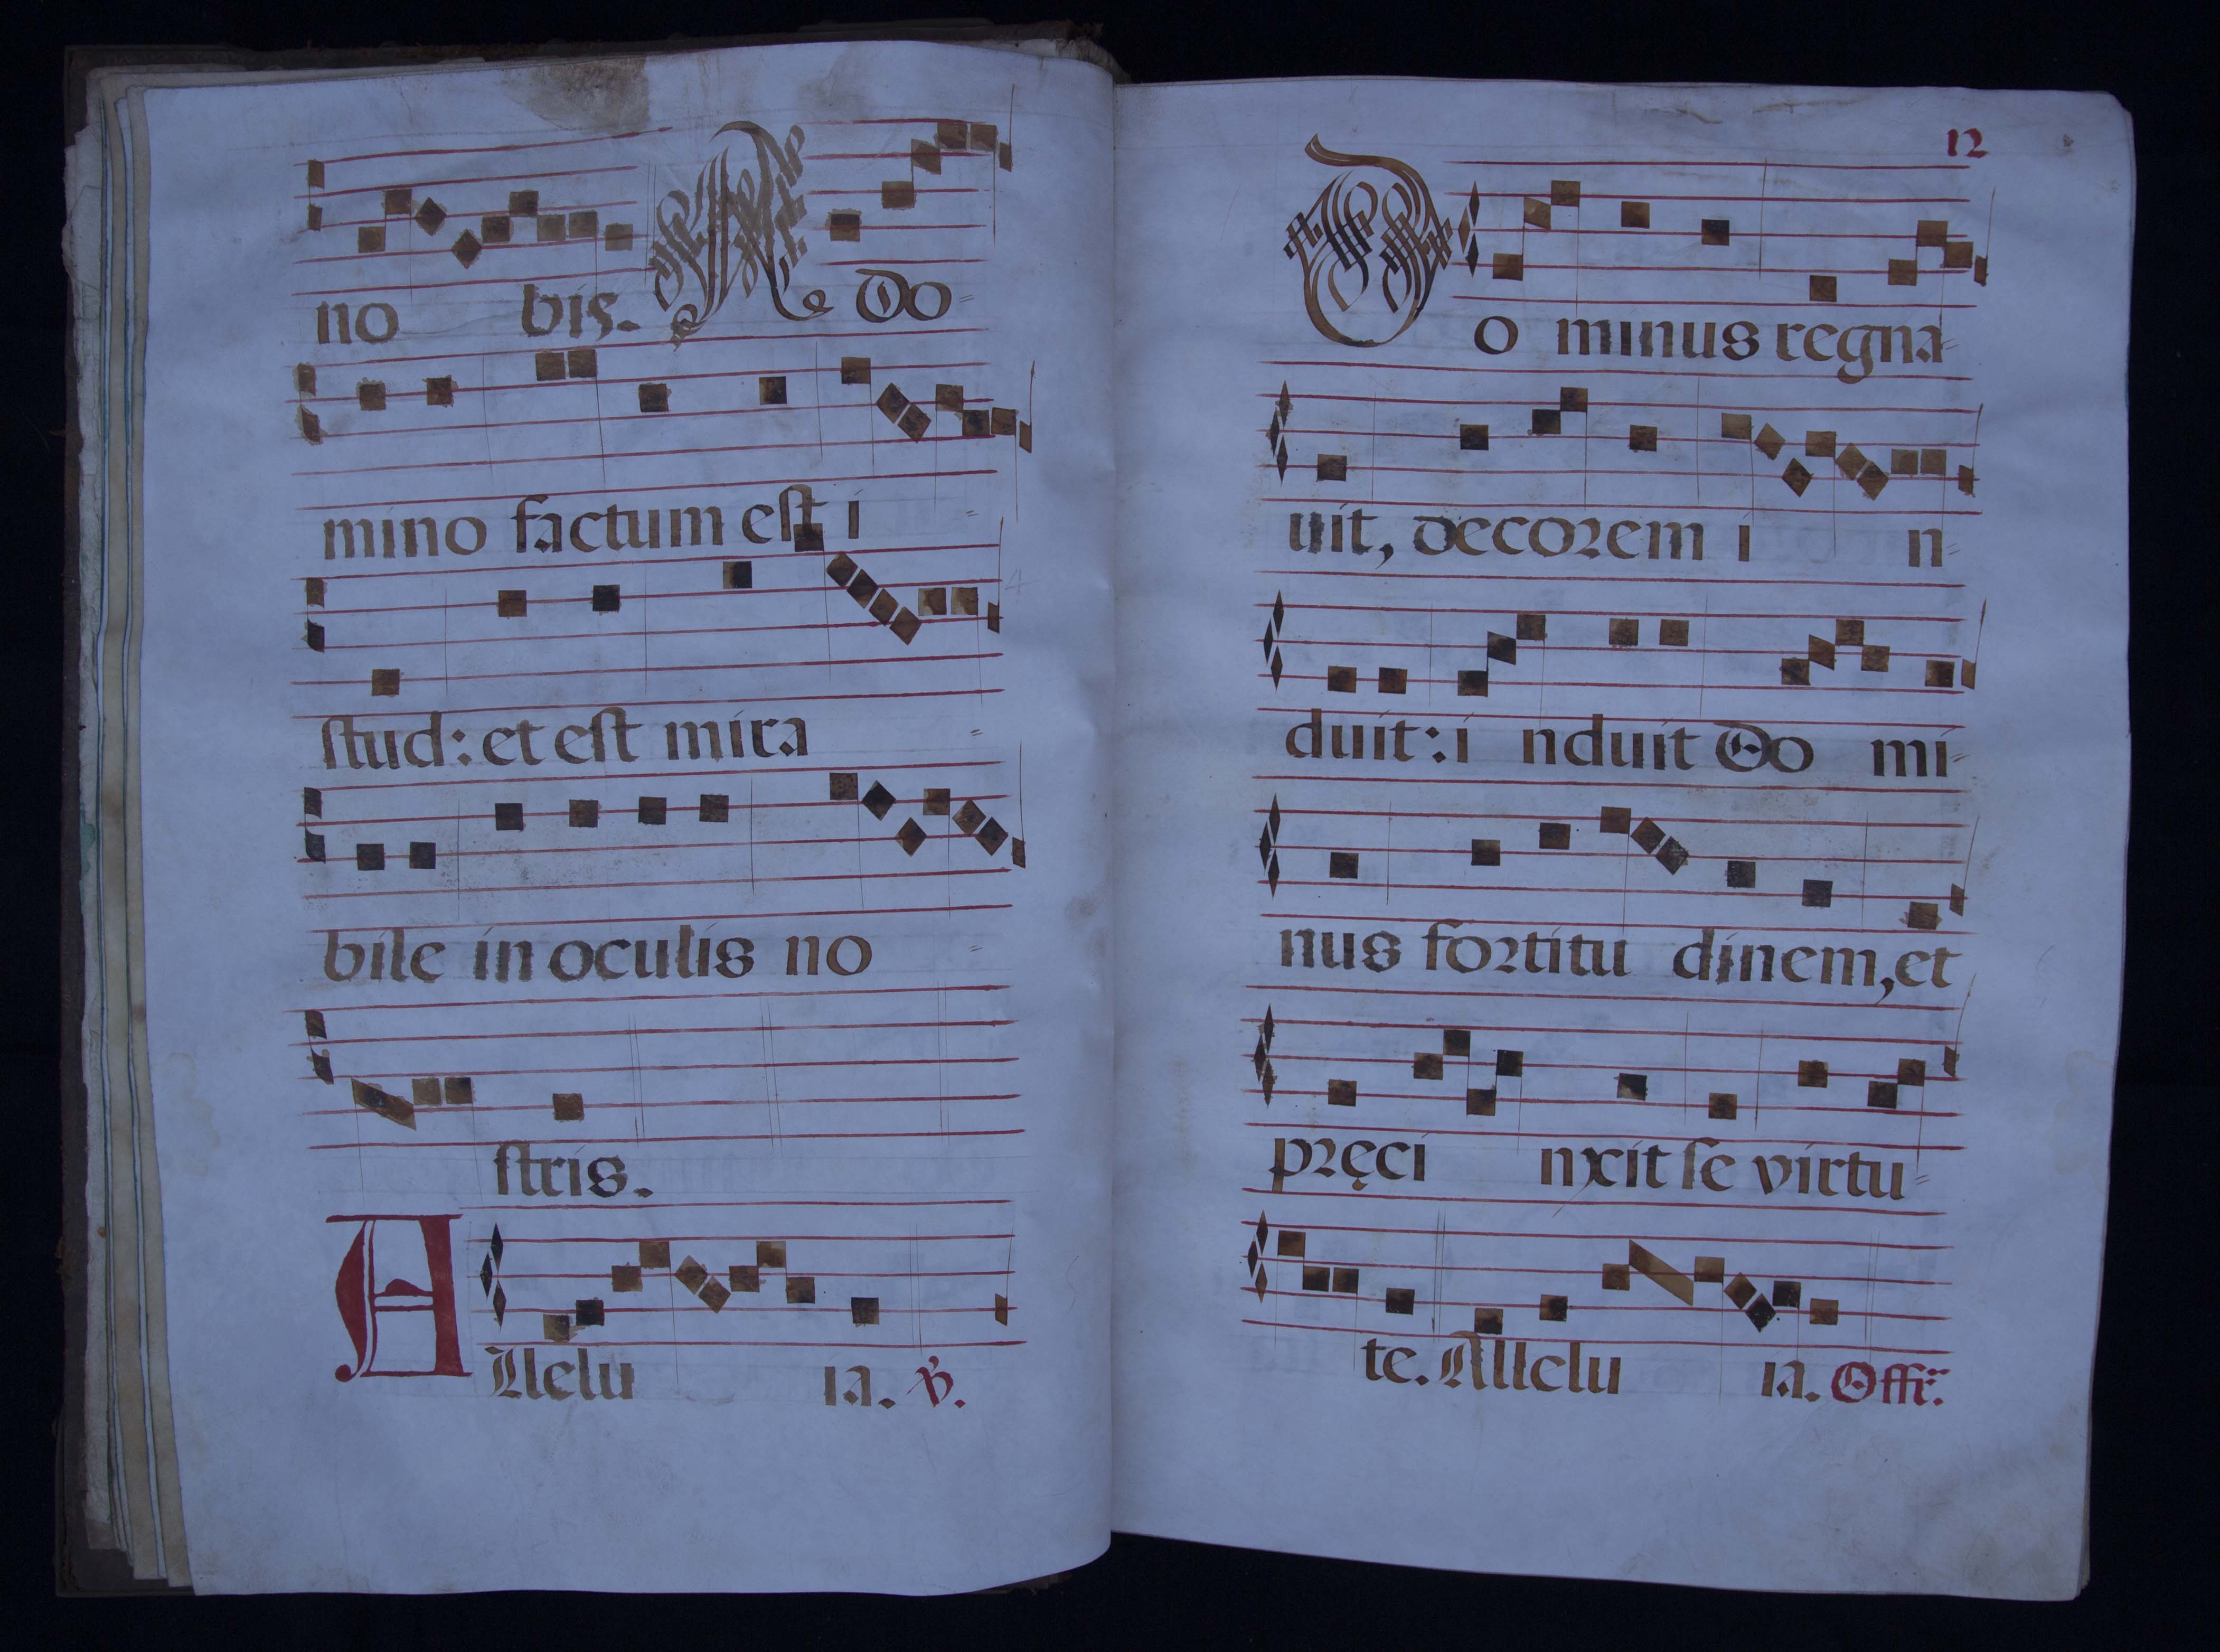 no bis. A Do=
mino factum est i =
stud: et est mira =
bile in oculis no =
stris.
Allelu ia. ℣.
12
Do minus regna=
uit, decorem i n=
duit: i nduit Do mi=
nus fortitu dinem, et
pręci nxit se virtu=
te. Allelu ia. Offr̃.